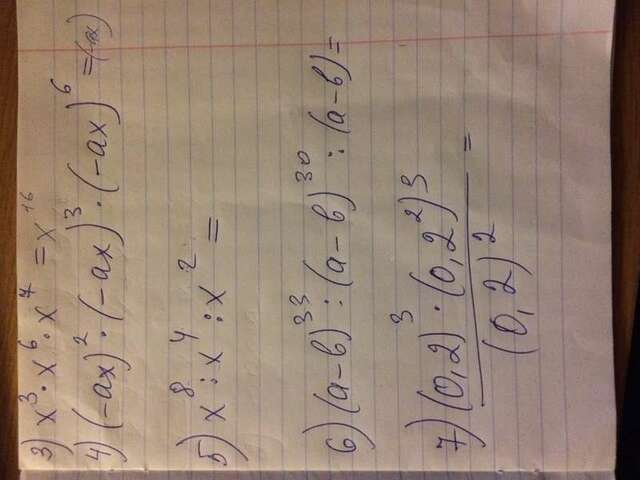 3) x³ · x⁶ · x⁷ = x¹⁶
4) (-ax)² · (-ax)³ · (-ax)⁶ = (-ax)
5) x⁸ : x⁴ : x² =
6) (a-b)³³ : (a-b)³⁰ : (a-b) =
7) (0,2)³ · (0,2²)³
(0,2)² =